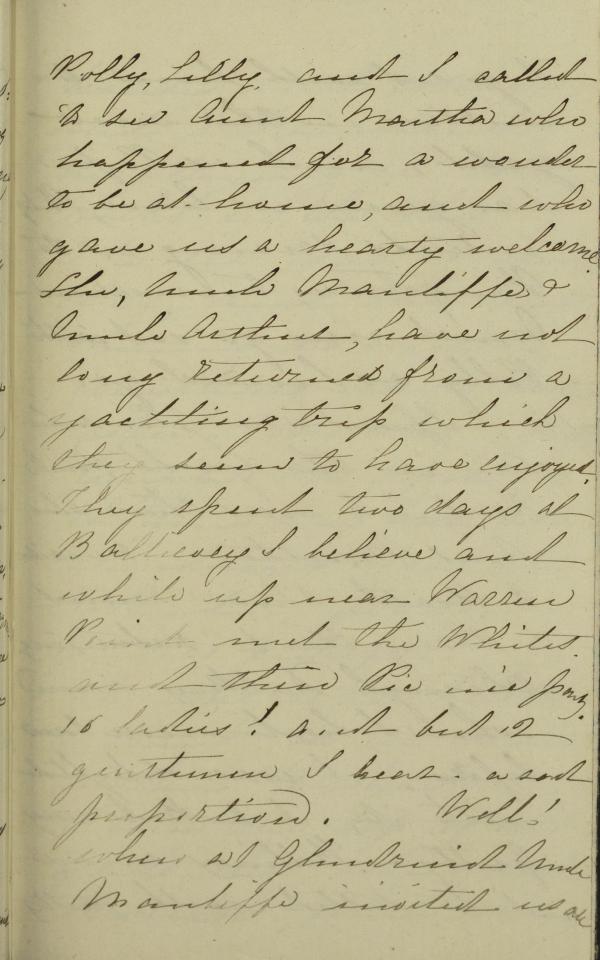 Polly, Lilly, and I called
to see Aunt Martha who
happened for a wonder
to be at home, and who
gave us a hearty welcome.
She, Uncle Mantiffe &
Uncle Arthur, have not
long returned from a
yachting trip which
they seem to have enjoyed.
They spent two days at
I believe and
while up near Warren
Point met the Whites
and their Pic nic party.
16 ladies! and but 12
gentlemen I hear. a sad
proportion. Well!
when at Uncle
Mantiffe invited us all